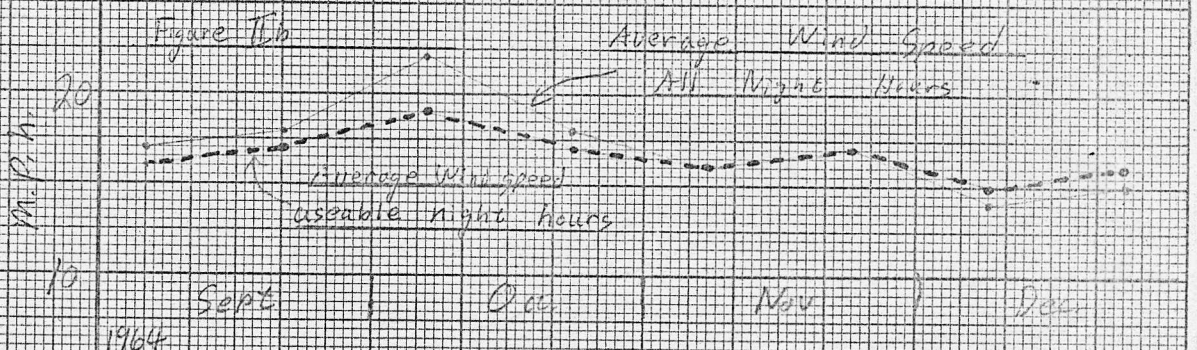 Figure IIb
Average Wind Speed
All Night Hours
20
m.p.h.
Average Windspeed
useable night hours
10
Sept Oct Nov Dec
1964